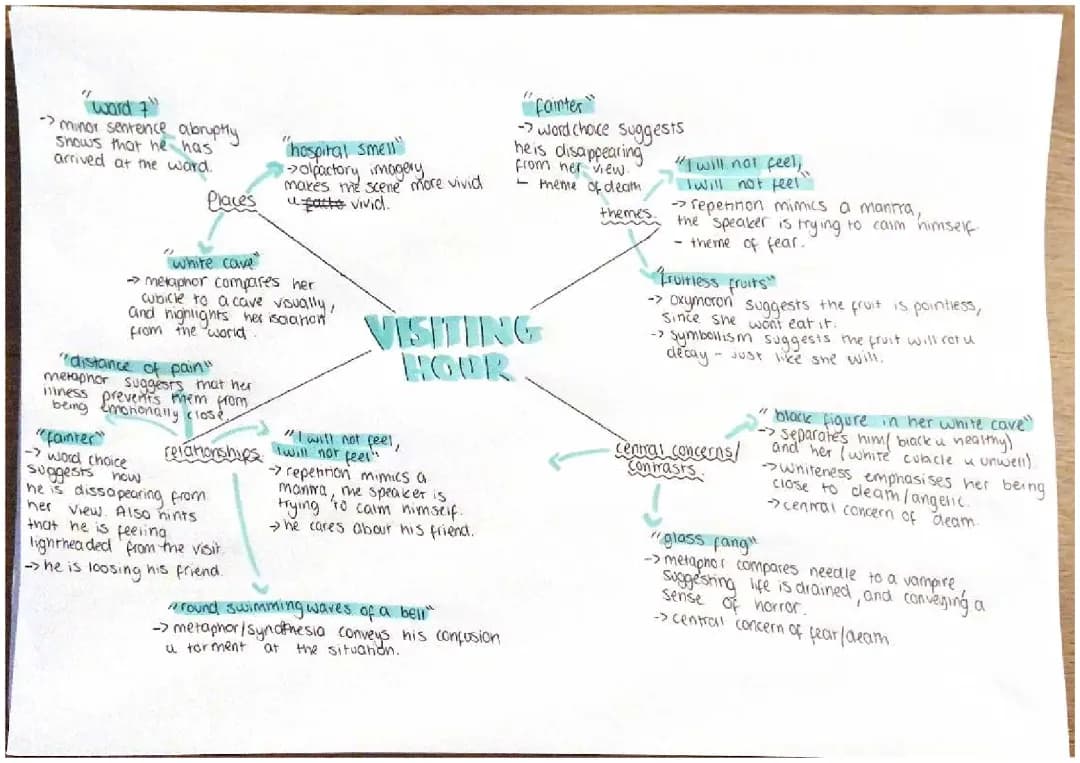 VISITING
HOUR
Places
"ward 7"
-> minor sentence abruptly
shows that he has
arrived at the ward.
"hospital smell"
-> olfactory imagery
makes the scene more vivid
vivid.
"white cave"
-> metaphor compares her
cubicle to a cave visually,
and highlights her isolation
from the world.
themes.
"fainter"
-> word choice suggests
he is disappearing
from her view.
- theme of death
"I will not feel,
I will not feel"
-> repetition mimics a mantra,
the speaker is trying to calm himself.
- theme of fear.
"fruitless fruits"
-> oxymoron suggests the fruit is pointless,
since she wont eat it.
-> symbolism suggests the fruit will rot u
decay - just like she will.
relationships.
"distance of pain"
metaphor suggests that her
illness prevents them from
being emotionally close.
"fainter"
-> word choice
suggests how
he is dissapearing from
her view. Also hints
that he is feeling
lightheaded from the visit.
-> he is loosing his friend.
"I will not feel,
I will not feel"
-> repetition mimics a
mantra, the speaker is
trying to calm himself.
-> he cares about his friend.
"round swimming waves of a bell"
-> metaphor/ conveys his confusion
u torment at the situation.
central concerns/
contrasts.
"black figure in her white cave"
-> separates him (black u healthy)
and her (white cubicle u unwell).
-> whiteness emphasises her being
close to death/angelic.
-> central concern of death.
"glass fang"
-> metaphor compares needle to a vampire,
suggesting life is drained, and conveying a
sense of horror.
-> central concern of fear/death